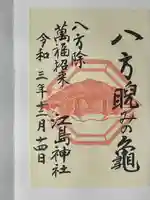 八方睨みの亀
八方除
萬福招来
江島神社
令和三年十二月十四日